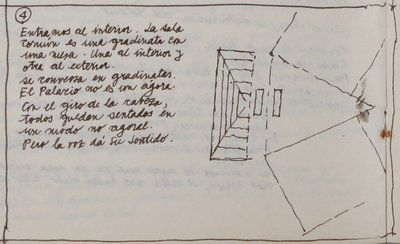 4
Entramos al interior. La sala
común es una gradinata con
una mesa. Una al interior y
otra al exterior.
se conversa en gradinatas.
El Palacio no es un agora.
Con el giro de la cabeza,
todos quedan sentados en
un modo no agoral.
Pero la voz da su sentido.